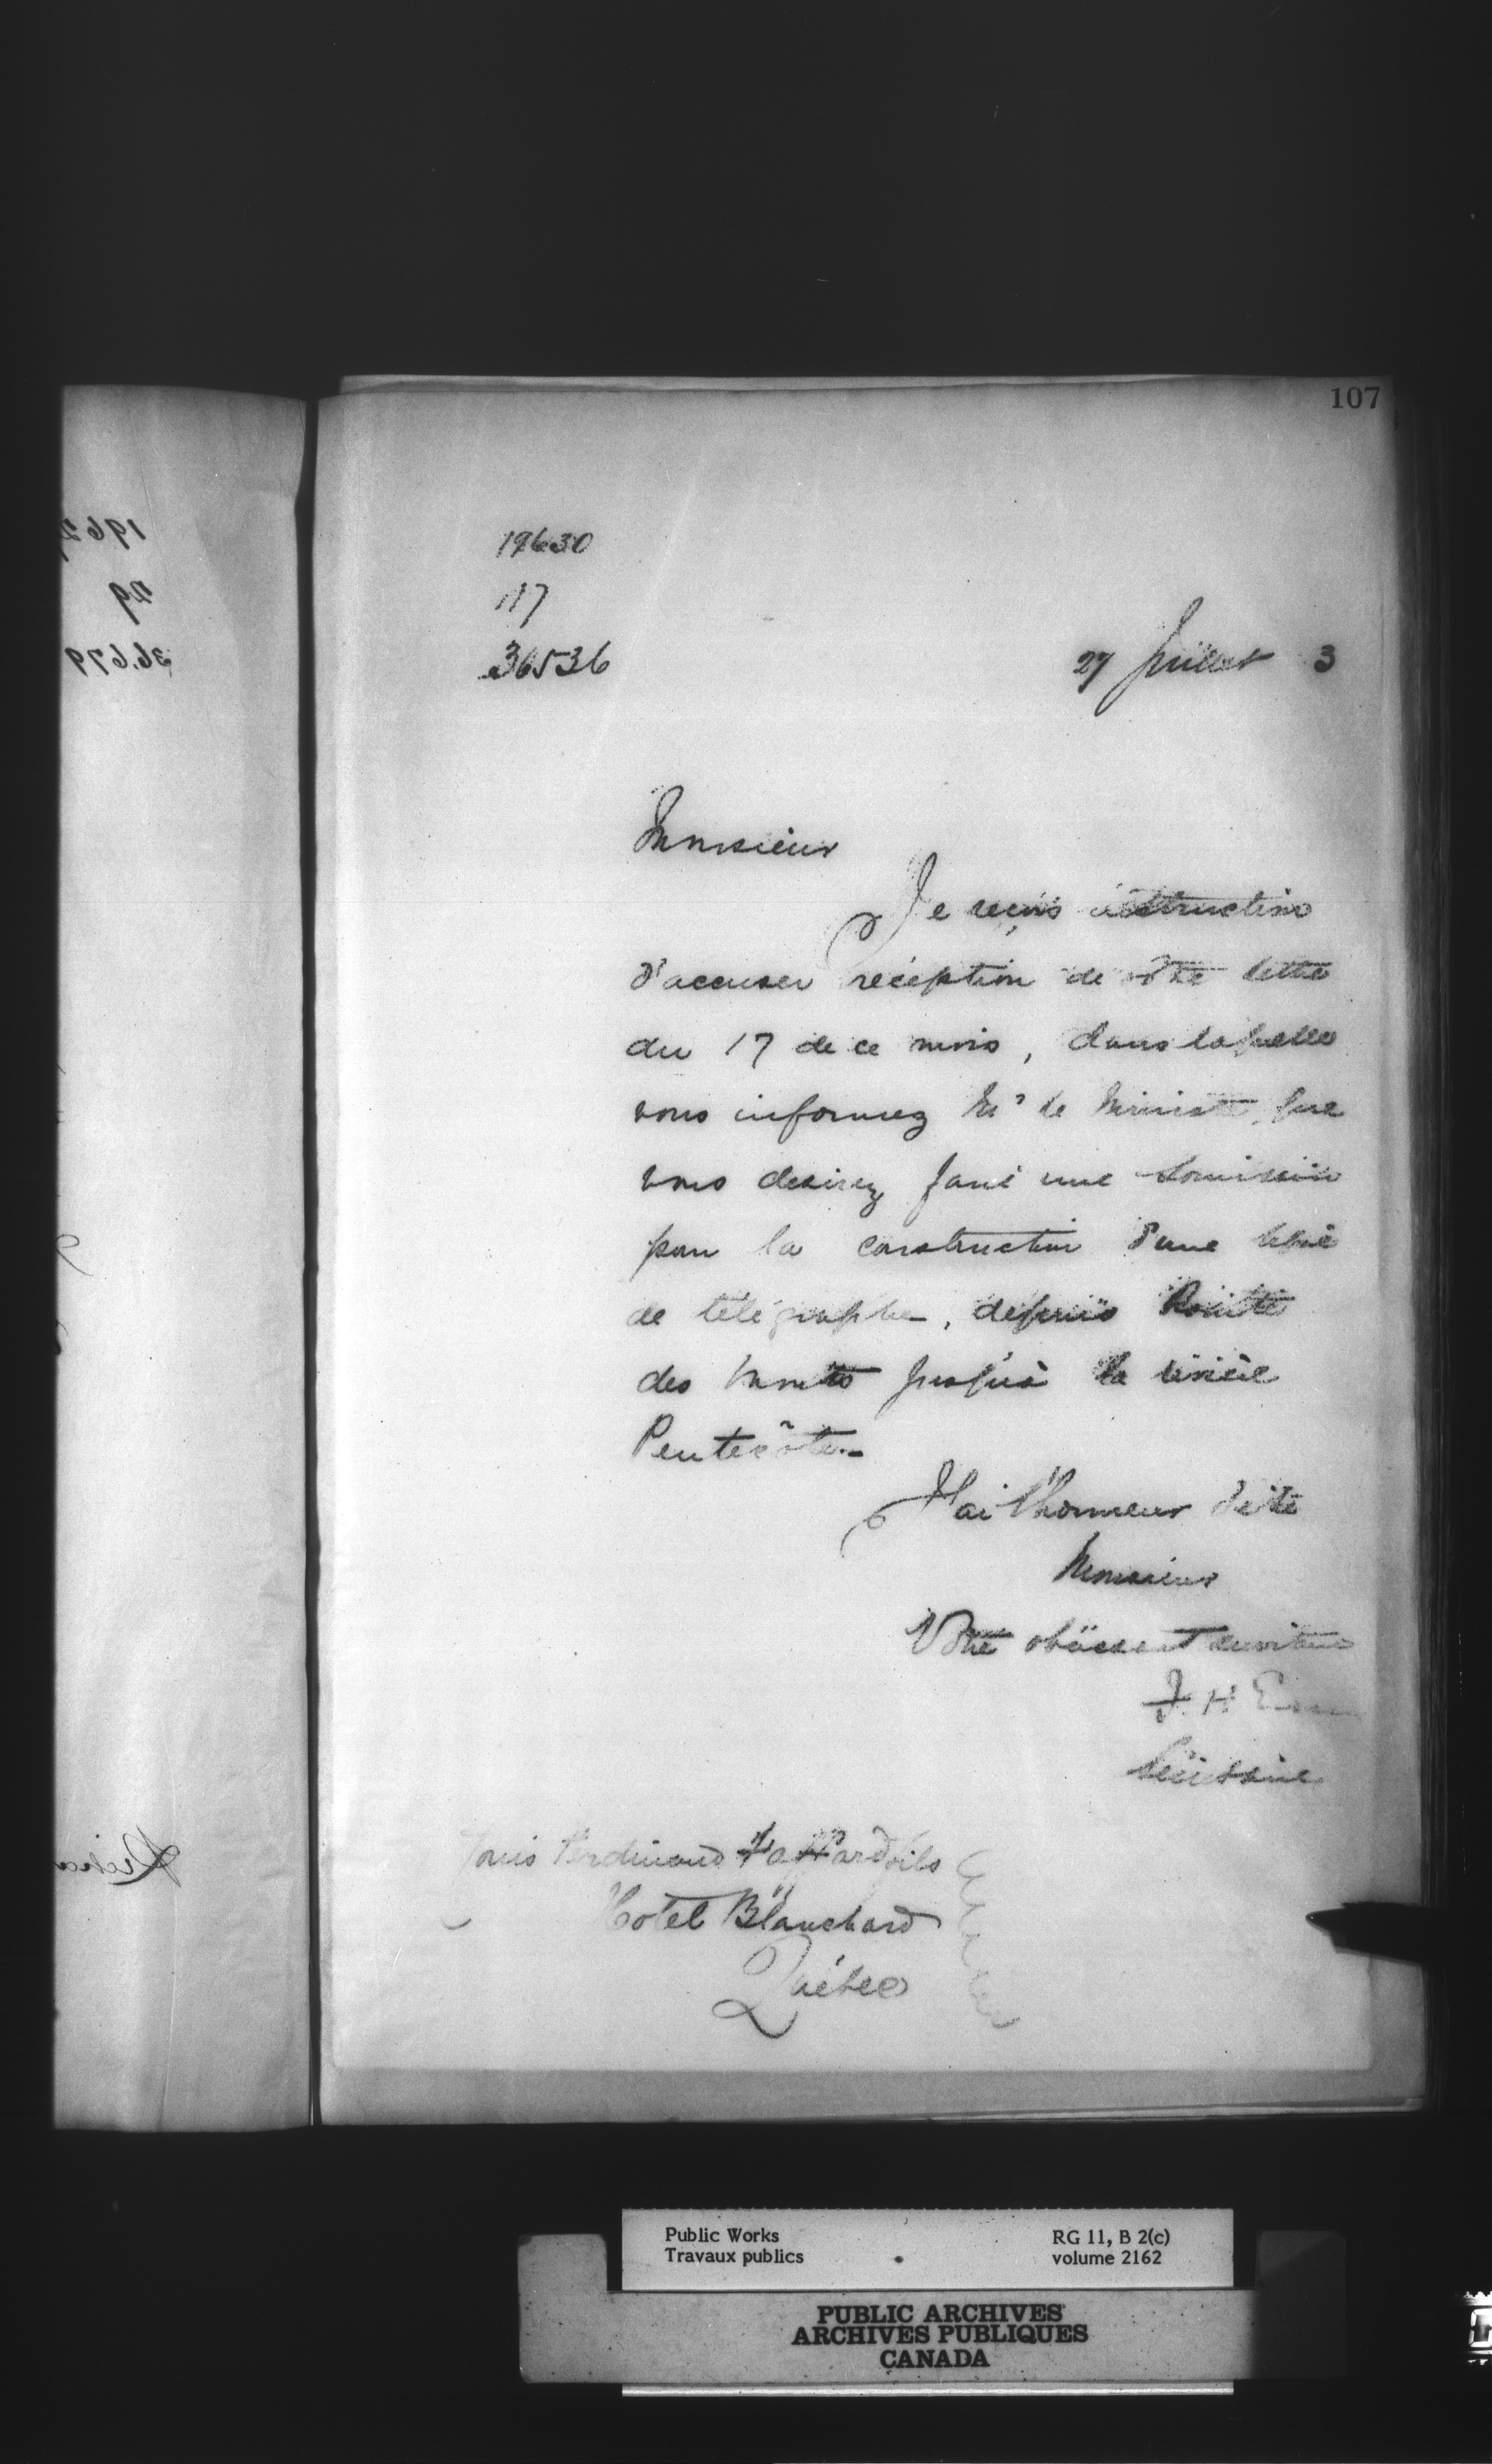 107
19630
117
36536
27 Juillet 3
Monsieur
Je reçois instruction
d'accuser réception de vôtre lettre
du 17 de ce mois, dans laquelle
vous informez Mr le Ministre, que
vous desirez faire une soumission
pour la construction d'une ligne
de télégraphe, depuis Pointe
des Monts jusqu'à la rivière
Pentecôte.
J'ai l'honneur d'être
Monsieur
Vôtre obéissant serviteur
F. H. Ennis
Secrétaire
Louis Ferdinand fils
Hotel Blanchard
Québec
36.679
Public Works
Travaux publics
RG 11, B 2(c)
volume 2162
PUBLIC ARCHIVES
ARCHIVES PUBLIQUES
CANADA